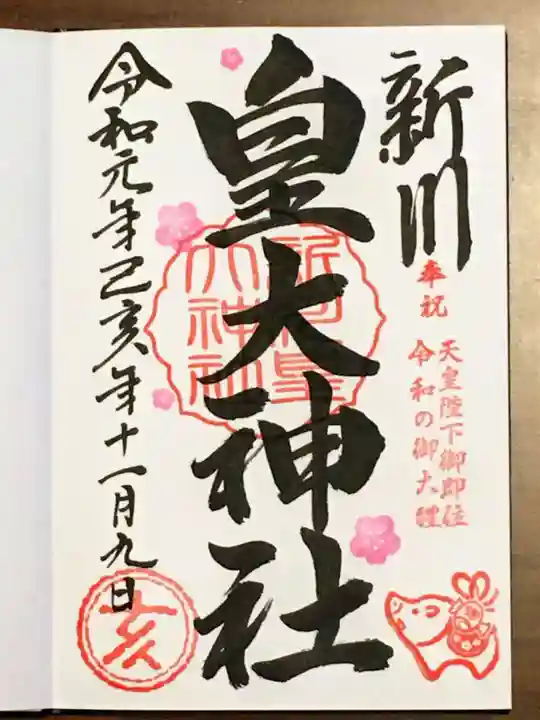 新川
奉祝
天皇陛下御即位
令和の御大禮
皇大神社
新川皇
大神社
令和元年己亥年十一月九日
亥